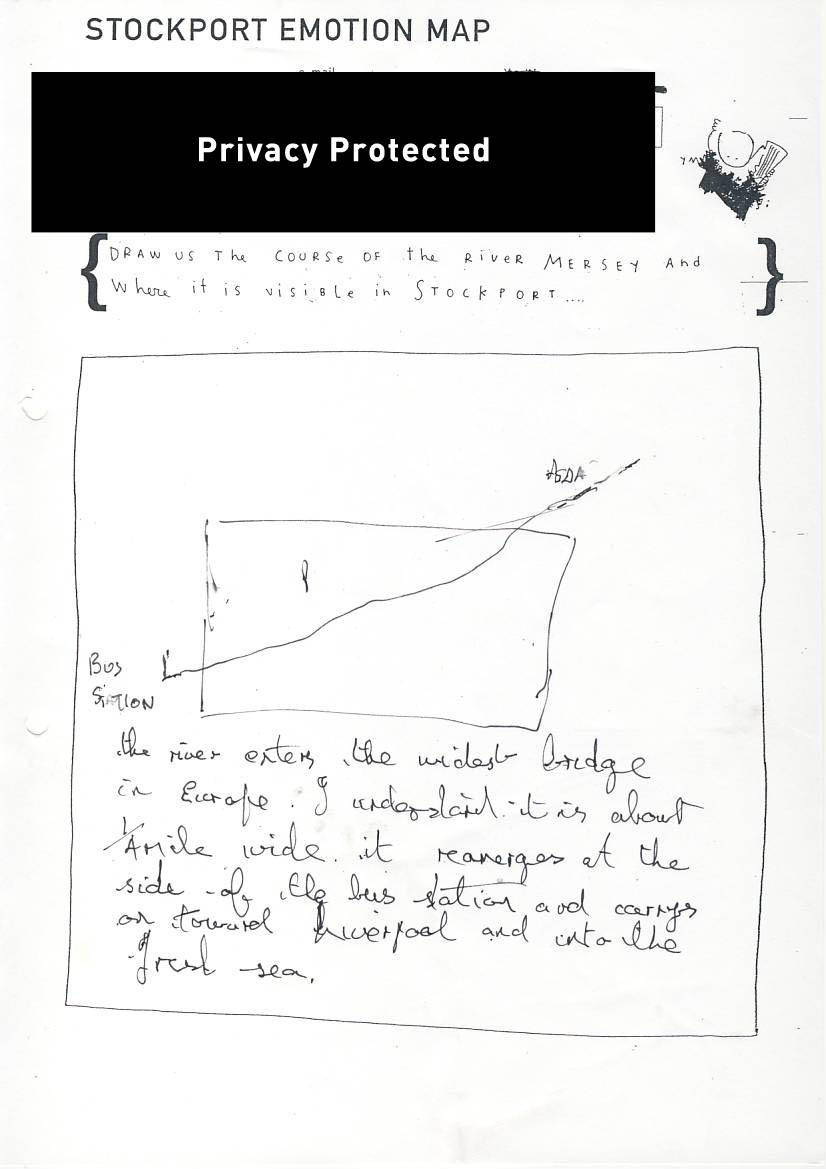 STOCKPORT EMOTION MAP
Privacy Protected
DRAW US The COURSe OF the RiveR MERSEY And
Where it is visiBle in STOCKPORT....
ASDA
BUS
STATION
the river enters the widest bridge
in Europe. I understand it is about
1/4 mile wide. it reamerges at the
side of the bus station and carrys
on toward Liverpool and into the
Irish sea.